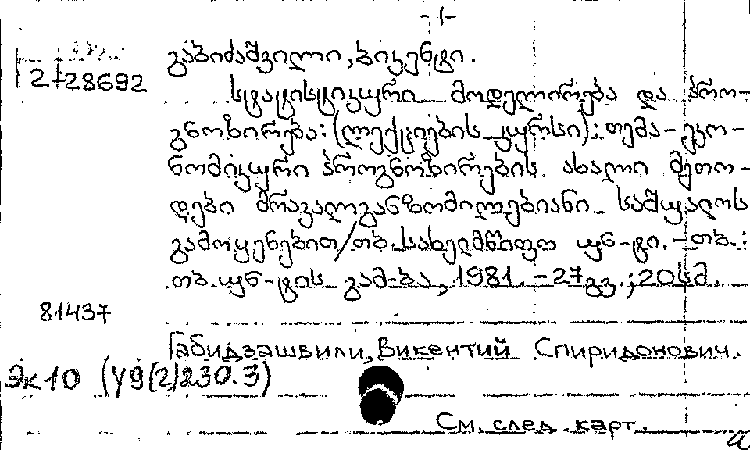 -1-
გაბიძაშვილი, ვიკენტი.
2-28692
სტატისტიკური მოდელირება და პრო-
გნოზირება: (ლექციების კურსი): თემა- ეკო-
ნომიკური პროგნოზირების ახალი მეთო-
დები მრავალგანზომილებიანი საშუალოს
გამოყენებით/თბ. სახელმწიფო უნ-ტი.-თბ.:
თბ. უნ-ტის გამ-ბა, 1981.-27გვ.; 20სმ.
81437
Габидзашвили, Викентий Спиридонович.
Эк10 (У9(2)230.3)
См. след. карт.